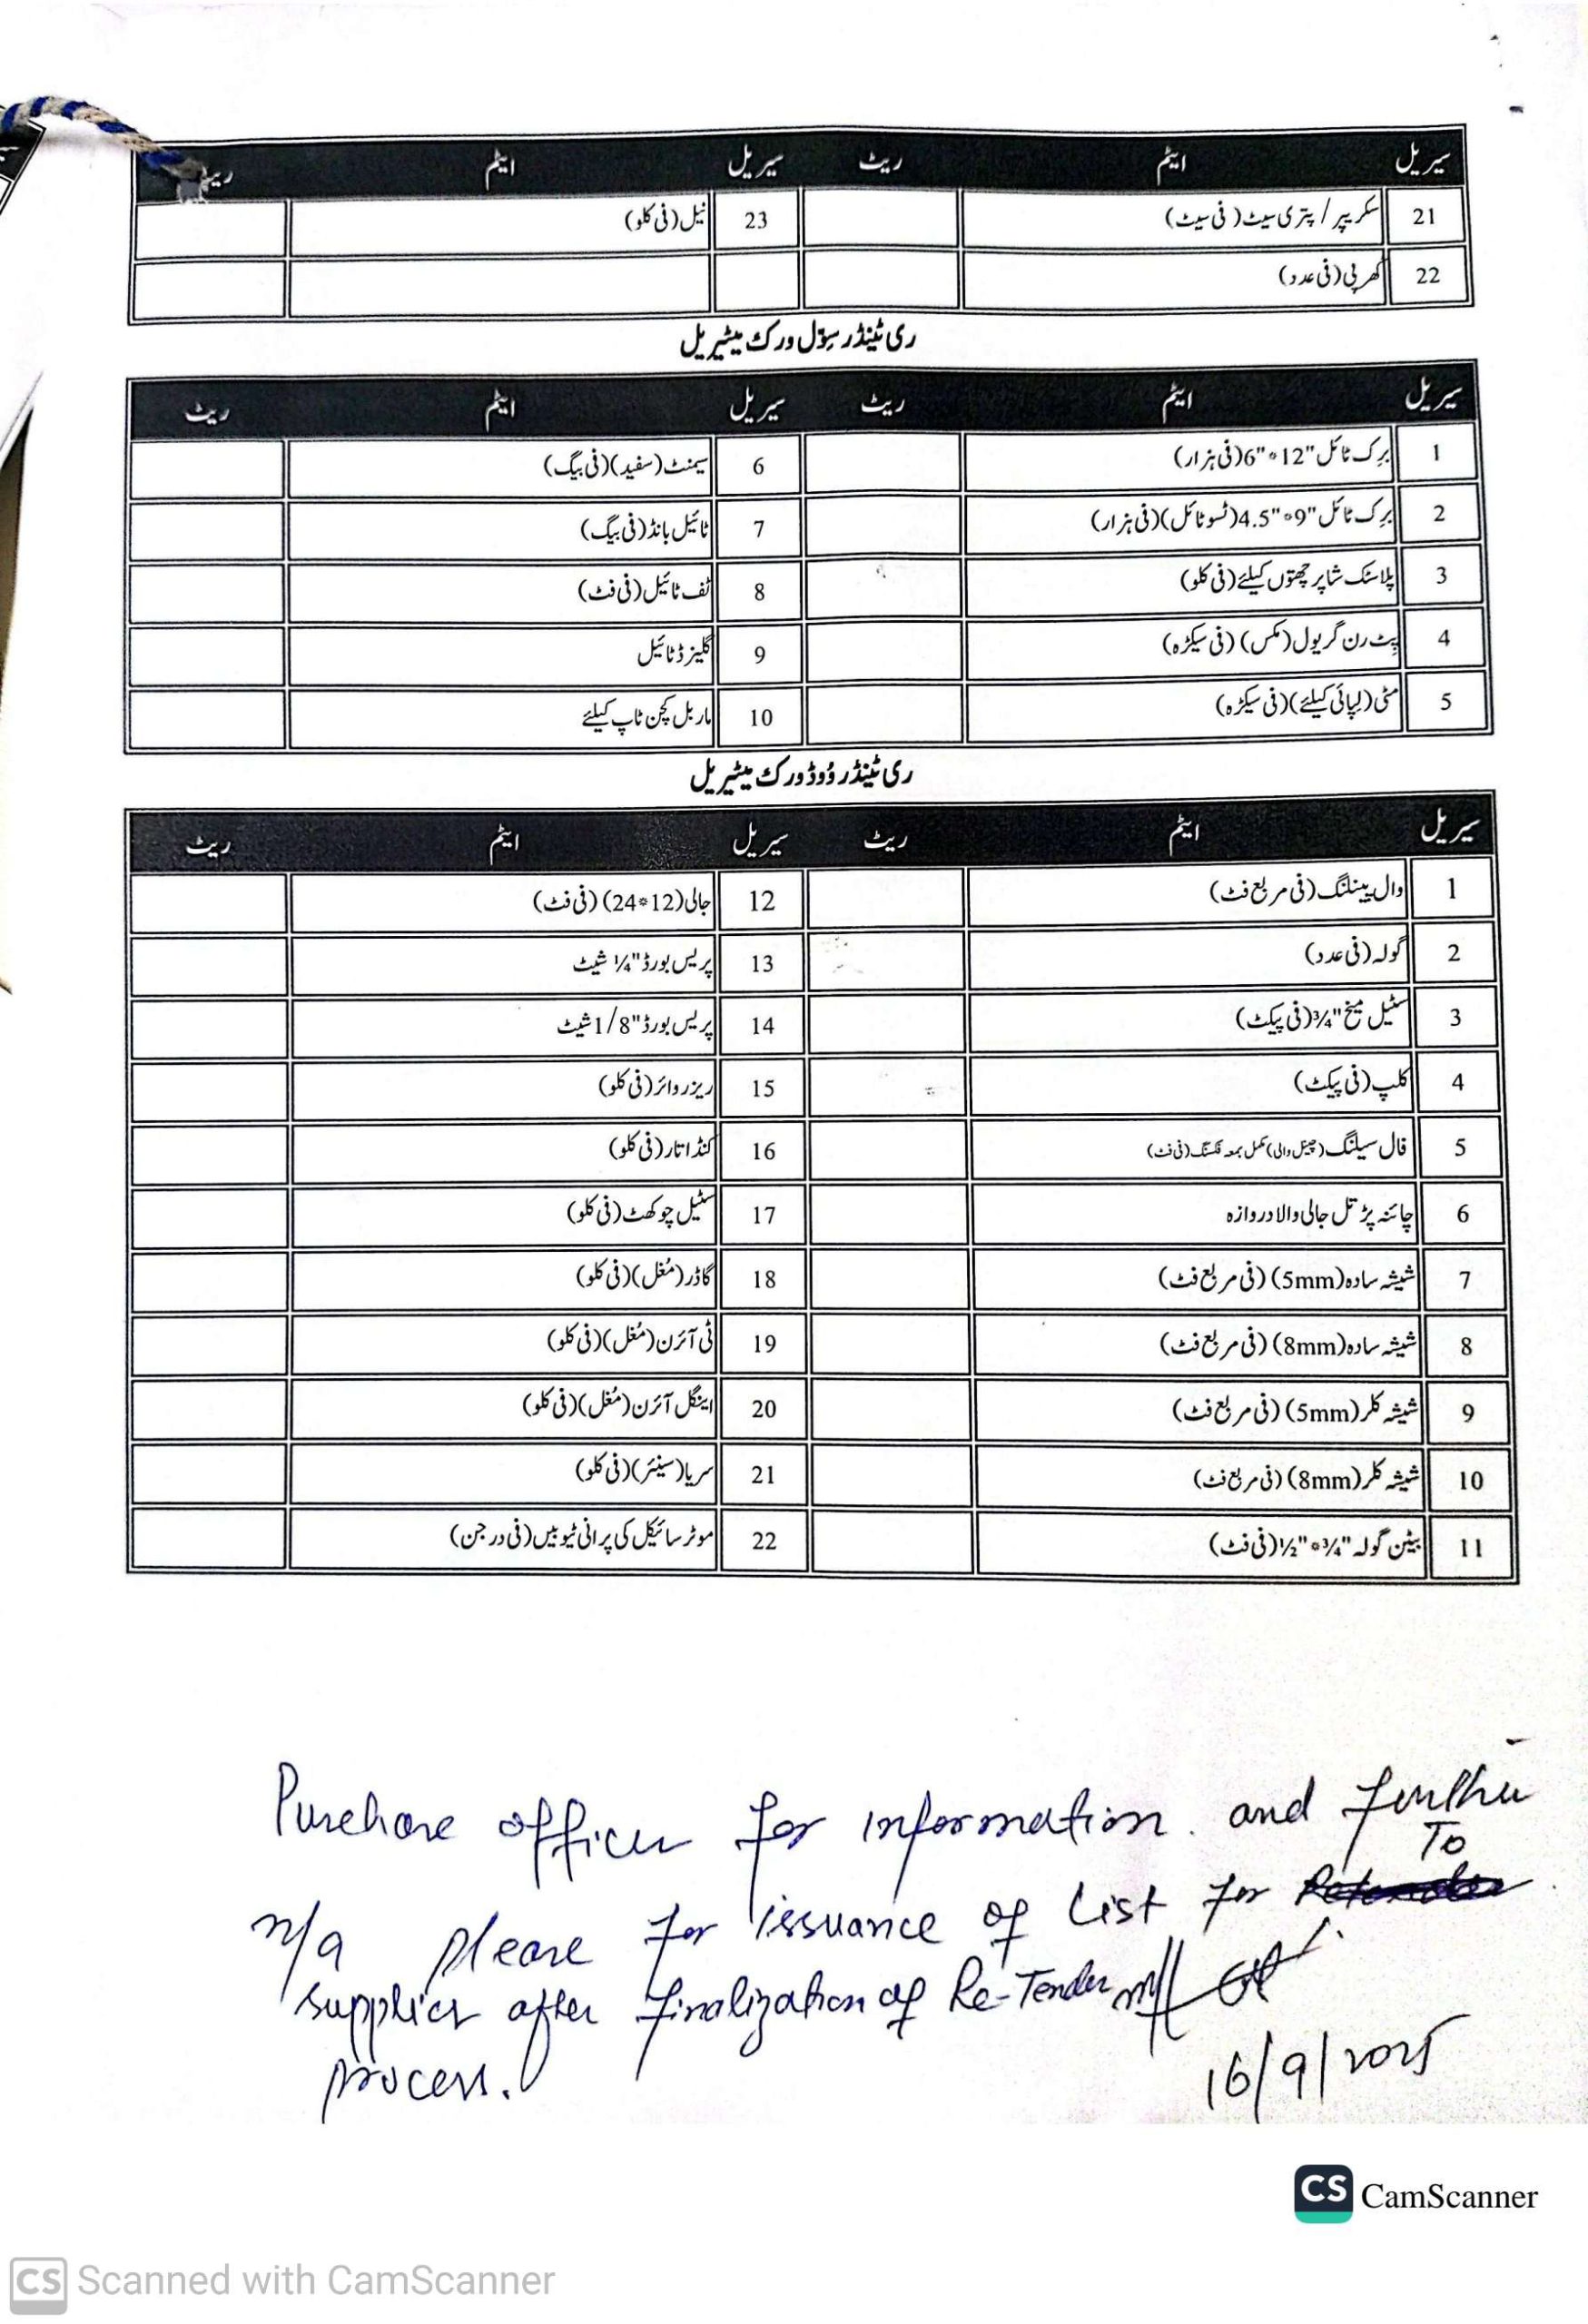 سیریل ایٹم ریٹ سیریل ایٹم ریٹ
21 سکریپر / پتری سیٹ (فی سیٹ) 23 نیل (فی کلو)
22 کھرپی (فی عدد)
ری ٹینڈر سِوّل ورک میٹیریل
سیریل ایٹم ریٹ سیریل ایٹم ریٹ
1 برک ٹائل "12*"6 (فی ہزار) 6 سیمنٹ (سفید) (فی بیگ)
2 برک ٹائل "9*"4.5 (ٹسو ٹائل) (فی ہزار) 7 ٹائیل بانڈ (فی بیگ)
3 پلاسٹک شاپر چھتوں کیلئے (فی کلو) 8 ٹف ٹائیل (فی فٹ)
4 پِٹ رن گریول (مکس) (فی سیکڑہ) 9 گلیزڈ ٹائیل
5 مٹی (لپائی کیلئے) (فی سیکڑہ) 10 ماربل کچن ٹاپ کیلئے
ری ٹینڈر وُوڈ ورک میٹیریل
سیریل ایٹم ریٹ سیریل ایٹم ریٹ
1 وال پینلنگ (فی مربع فٹ) 12 جالی (12*24) (فی فٹ)
2 گولہ (فی عدد) 13 پریس بورڈ "¼ شیٹ
3 سٹیل میخ "¾ (فی پیکٹ) 14 پریس بورڈ "1/8 شیٹ
4 کلپ (فی پیکٹ) 15 ریزر وائر (فی کلو)
5 فال سیلنگ (چینل والی) مکمل بمعہ فکسنگ (فی فٹ) 16 کنڈا تار (فی کلو)
6 چائنہ پڑتل جالی والا دروازہ 17 سٹیل چوکھٹ (فی کلو)
7 شیشہ سادہ (5mm) (فی مربع فٹ) 18 گاڈر (مُغل) (فی کلو)
8 شیشہ سادہ (8mm) (فی مربع فٹ) 19 ٹی آئرن (مُغل) (فی کلو)
9 شیشہ کلر (5mm) (فی مربع فٹ) 20 اینگل آئرن (مُغل) (فی کلو)
10 شیشہ کلر (8mm) (فی مربع فٹ) 21 سریا (سینئر) (فی کلو)
11 بیٹن گولہ "¾*"½ (فی فٹ) 22 موٹر سائیکل کی پرانی ٹیوبیں (فی درجن)
Purchase officer for information. and further
To
n/a please for issuance of List for
supplier after finalization of Re-Tender
process.
16/9/2025
CS CamScanner
CS Scanned with CamScanner